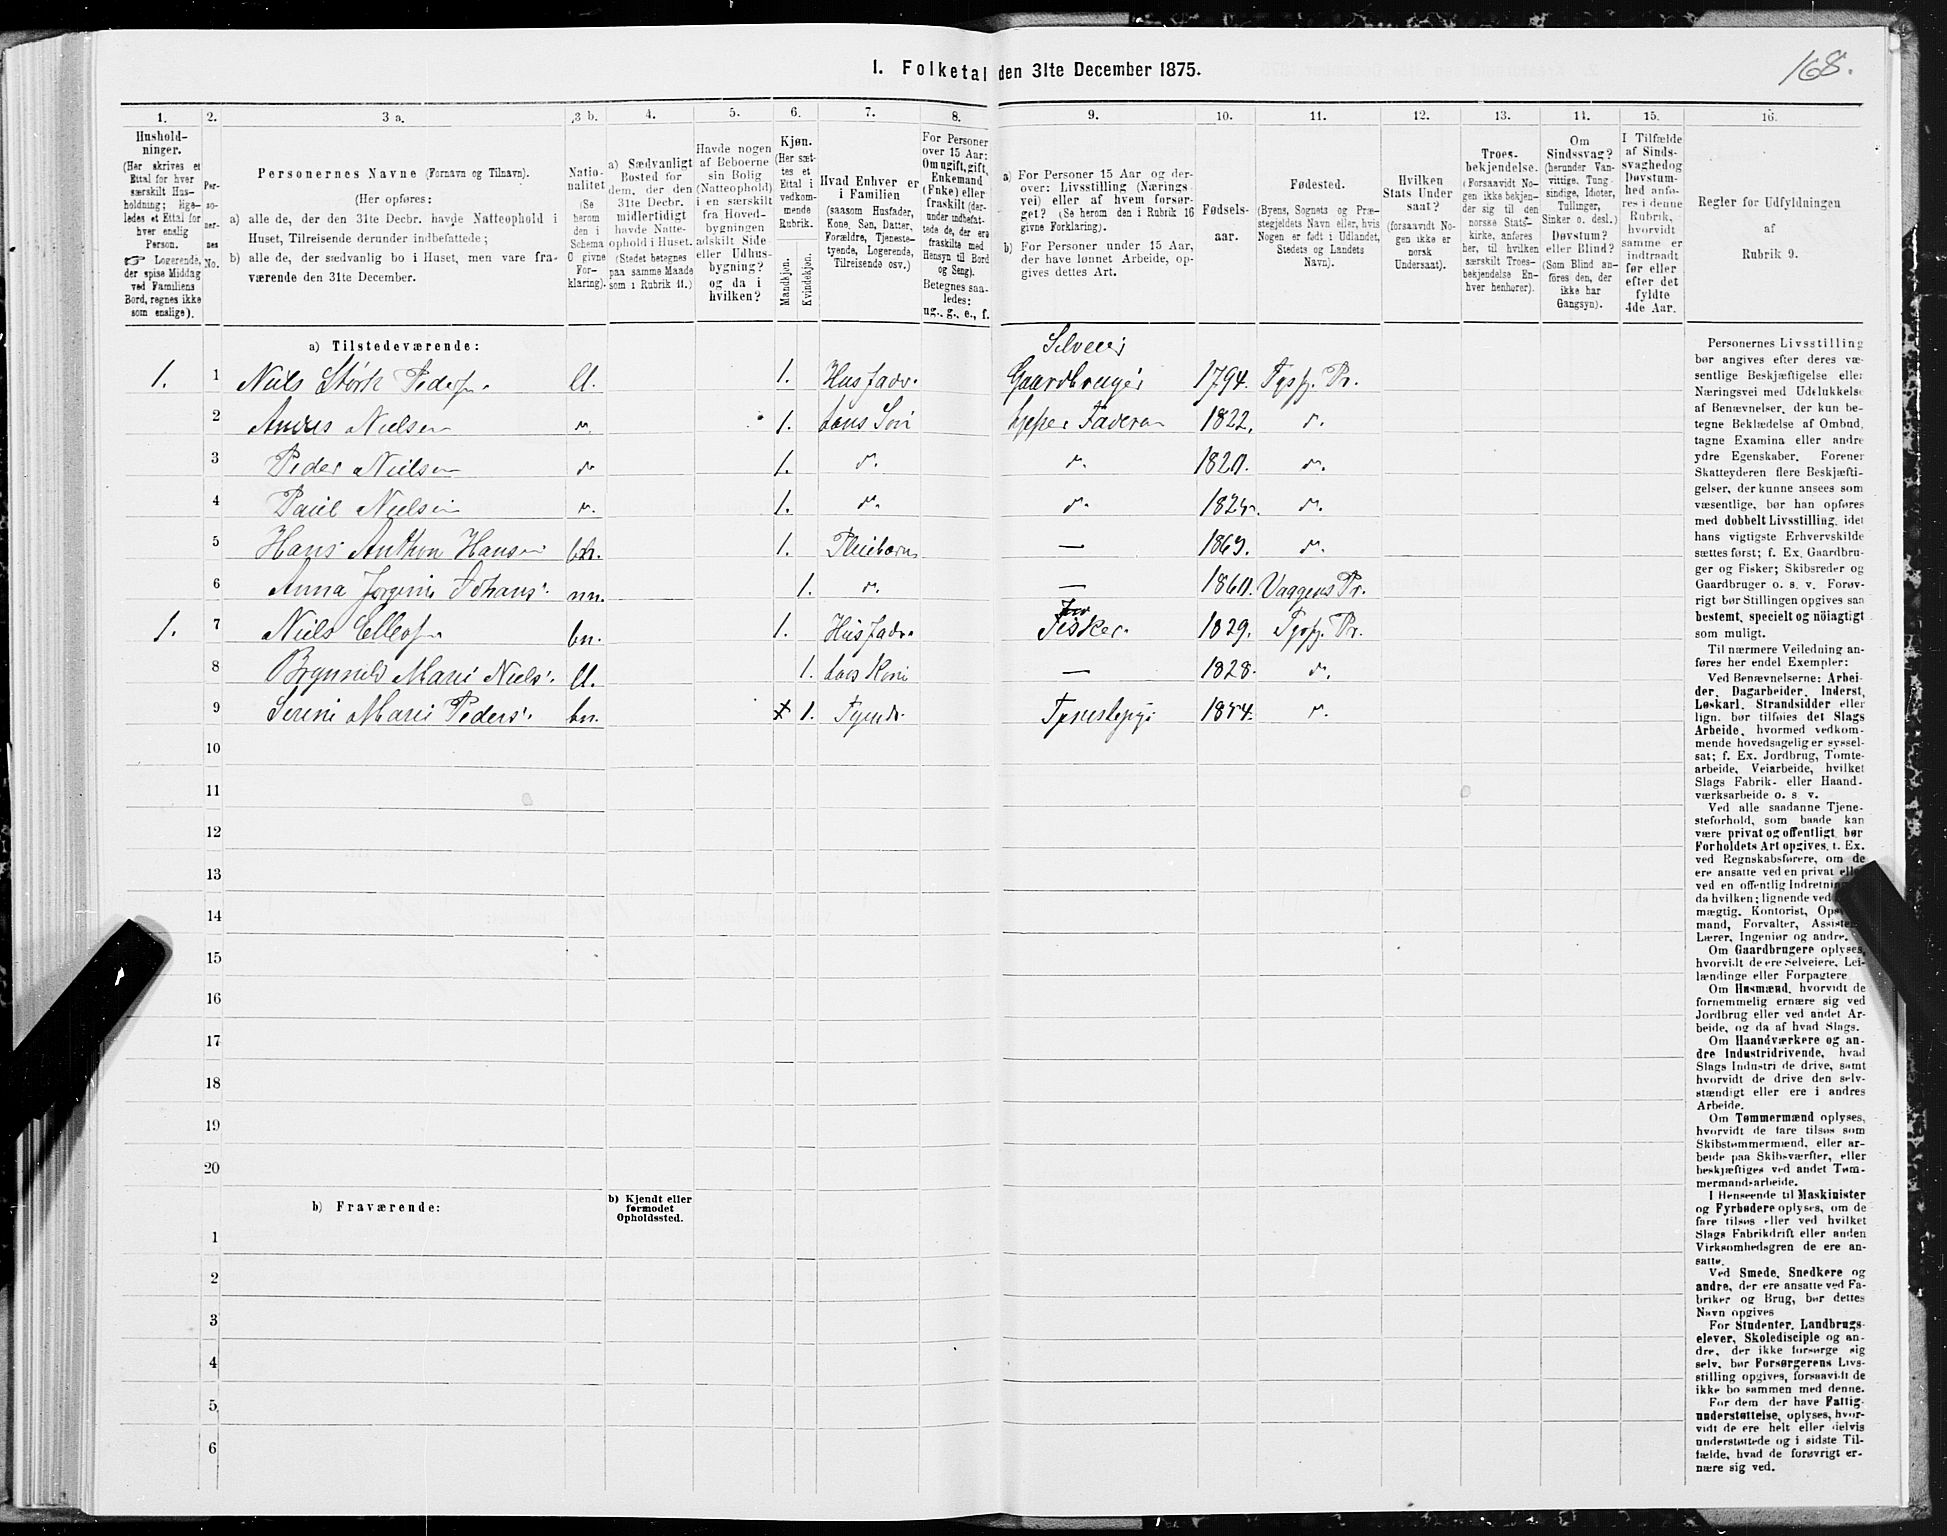 168.
1. Folketal den 31te December 1875.
1. 2. 3 a. 3 b. 4. 5. 6. 7. 8. 9. 10. 11. 12. 13. 14. 15. 16.
Husholdninger.
(Her skrives et Ettal for hver særskilt Husholdning; ligeledes et Ettal for hver enslig Person.
☞ Logerende, der spise Middag ved Familiens Bord, regnes ikke som enslige).
Personernes No.
Personernes Navne (Fornavn og Tilnavn).
(Her opføres:
a) alle de, der den 31te Decbr. havde Natteophold i Huset, Tilreisende derunder indbefattede;
b) alle de, der sædvanlig bo i Huset, men vare fraværende den 31te December.
Nationalitet (Se herom den i Schema O givne Forklaring).
a) Sædvanligt Bosted for dem, der den 31te Decbr. midlertidigt havde Natteophold i Huset. (Stedet betegnes paa samme Maade som i Rubrik 11.)
Havde nogen af Beboerne sin Bolig (Natteophold) i en særskilt fra Hovedbygningen adskilt Side- eller Udhusbygning? og da i hvilken?
Kjøn. (Her sættes et Ettal i vedkommende Rubrik.
Mandkjøn.
Kvindekjøn.
Hvad Enhver er i Familien (saasom Husfader, Kone, Søn, Datter, Forældre, Tjenestetyende, Logerende, Tilreisende osv.)
For Personer over 15 Aar: Om ugift, gift, Enkemand (Enke) eller fraskilt (derunder indbefattede de, der ere fraskilte med Hensyn til Bord og Seng). Betegnes saaledes: ug., g., e., f.
a) For Personer 15 Aar og derover: Livsstilling (Næringsvei) eller af hvem forsørget? (Se herom den i Rubrik 16 givne Forklaring).
b) For Personer under 15 Aar, der have lønnet Arbeide, opgives dettes Art.
Fødselsaar.
Fødested.
(Byens, Sognets og Præstegjeldets Navn eller, hvis Nogen er født i Udlandet, Stedets og Landets Navn).
Hvilken Stats Undersaat?
(forsaavidt Nogen ikke er norsk Undersaat).
Troesbekjendelse.
(Forsaavidt Nogen ikke bekjender sig til den norske Statskirke, anføres her, til hvilken særskilt Troesbekjendelse Enhver henhører).
Om Sindssvag? (herunder Vanvittige, Tungsindige, Idioter, Tullinger, Sinker o. desl.) Døvstum? eller Blind? (Som Blind anføres den, der ikke har Gangsyn).
I Tilfælde af Sindssvaghed og Døvstumhed anføres i denne Rubrik, hvorvidt samme er indtraadt før eller efter det fyldte 4de Aar.
Regler for Udfyldningen af Rubrik 9.
a) Tilstedeværende: Selveier
1. 1 Niels Størk Peders. ll. 1. Husfader Gaardbruger 1794. Tysfj. Pr.
2 Anders Nielsen 1. hans Søn hjelper Faderen 1822.
3 Peder Nielsen 1. 1820.
4 Paul Nielsen 1.
5 Hans Anthon Hansen 1. Pleiebarn — 1863.
6 Anna Jorgine Johans. nn. 1. — 1860. Vaagens Pr.
1. 7 Niels Ellefs. bn. 1. Husfader Fisker 1829. Tysfj. Pr.
8 Marie Niels. ll. 1. hans Kone — 1828.
9 Serine Marie Peders. bn. 1. Tyende Tjenestepige 1854.
10
11
12
13
14
15
16
17
18
19
20
b) Fraværende:
b) Kjendt eller formodet Opholdssted.
1
2
3
4
5
6
Personernes Livsstilling
bør angives efter deres væ-
sentlige Beskjæftigelse eller
Næringsvei med Udelukkelse
af Benævnelser, der kun be-
tegne Beklædelse af Ombud,
tagne Examina eller andre
ydre Egenskaber. Forener
Skatteyderen flere Beskjæfti-
gelser, der kunne ansees som
væsentlige, bør han opføres
med dobbelt Livsstilling, idet
hans vigtigste Erhvervskilde
sættes først; f. Ex. Gaardbru-
ger og Fisker; Skibsreder og
Gaardbruger o. s. v. Forøv-
rigt bør Stillingen opgives saa
bestemt, specielt og nöiagtigt
som muligt.
Til nærmere Veiledning an-
føres her endel Exempler:
Ved Benævnelserne: Arbei-
der, Dagarbeider, Inderst,
Løskarl, Strandsidder eller
lign. bør tilføies det Slags
Arbeide, hvormed vedkom-
mende hovedsagelig er syssel-
sat; f. Ex. Jordbrug, Tomte-
arbeide, Veiarbeide, hvilket
Slags Fabrik- eller Haand-
værksarbeide o. s. v.
Ved alle saadanne Tjene-
steforhold, som baade kan
være privat og offentligt, bør
Forholdets Art opgives, t. Ex.
ved Regnskabsførere, om de
ere ansatte ved en privat eller
ved en offentlig Indretning
da hvilken; lignende ved
mægtig, Kontorist,
mand, Forvalter,
Lærer, Ingeniør og andre.
Om Gaardbrugere oplyses,
hvorvidt de ere Selveiere, Lei-
lændinge eller Forpagtere
Om Husmænd, hvorvidt de
fornemmelig ernære sig ved
Jordbrug eller ved andet Ar-
beide, og da af hvad Slags.
Om Haandværkere og an-
dre Industridrivende, hvad
Slags Industri de drive, samt
hvorvidt de drive den selv-
stændigt eller ere i andres
Arbeide.
Om Tømmermænd oplyses,
hvorvidt de fare tilsøs som
Skibstømmermænd, eller ar-
beide paa Skibsværfter, eller
beskjæftiges ved andet Tøm-
mermandsarbeide.
I Henseende til Maskinister
og Fyrbødere oplyses, om de
fare tilsøs eller ved hvilket
Slags Fabrikdrift eller anden
Virksomhedsgren de ere an-
satte.
Ved Smede, Snedkere og
andre, der ere ansatte ved Fa-
briker og Brug, bør dettes
Navn opgives
For Studenter, Landbrugs-
elever, Skoledisciple og an-
dre, der ikke forsørge sig
selv, bør Forsørgerens Livs-
stilling opgives, forsaavidt de
ikke bo sammen med denne.
For dem, der have Fattig-
understøttelse, oplyses, hvor-
vidt de ere helt eller delvis
understøttede og i sidste Til-
fælde, hvad de forøvrigt er-
nære sig ved.